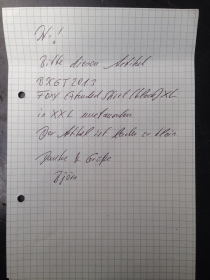 Hi!
Bitte diesen Artikel
Fort Extended Shirt (black) XL
in XXL umtauschen
Der Artikel ist leider zu klein
Danke & Grüße
Björn